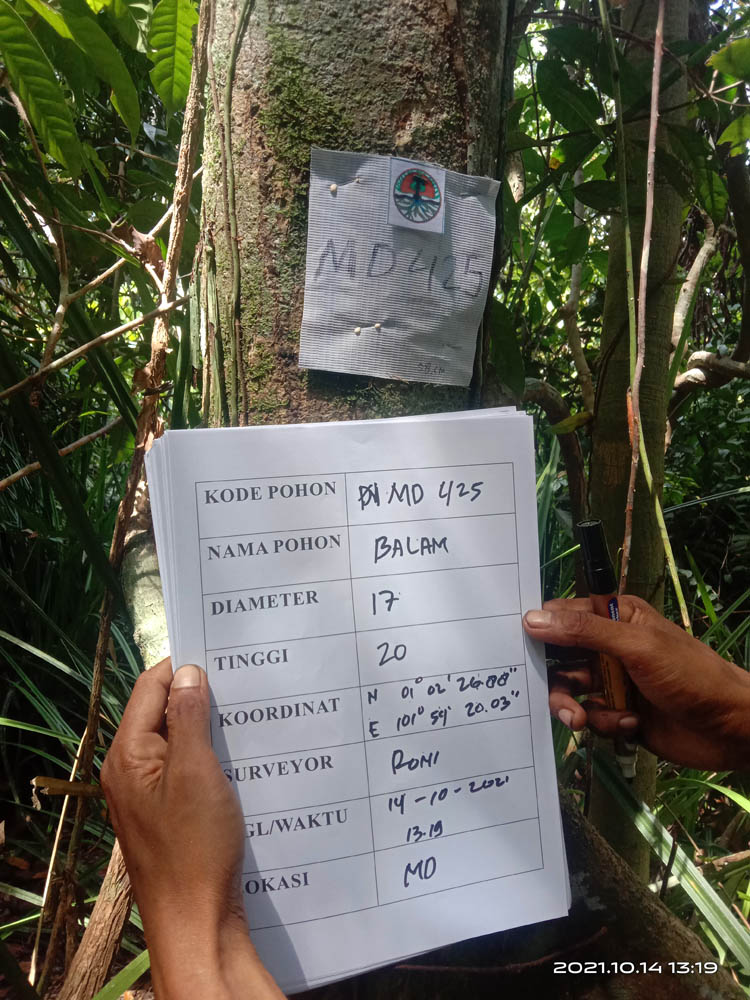 MD 425
KODE POHON MD 425
NAMA POHON BALAM
DIAMETER 17
TINGGI 20
KOORDINAT N 01° 02' 26.88"
E 101° 54' 20.03"
SURVEYOR RONI
GL/WAKTU 14-10-2021
13.19
OKASI MD
2021.10.14 13:19